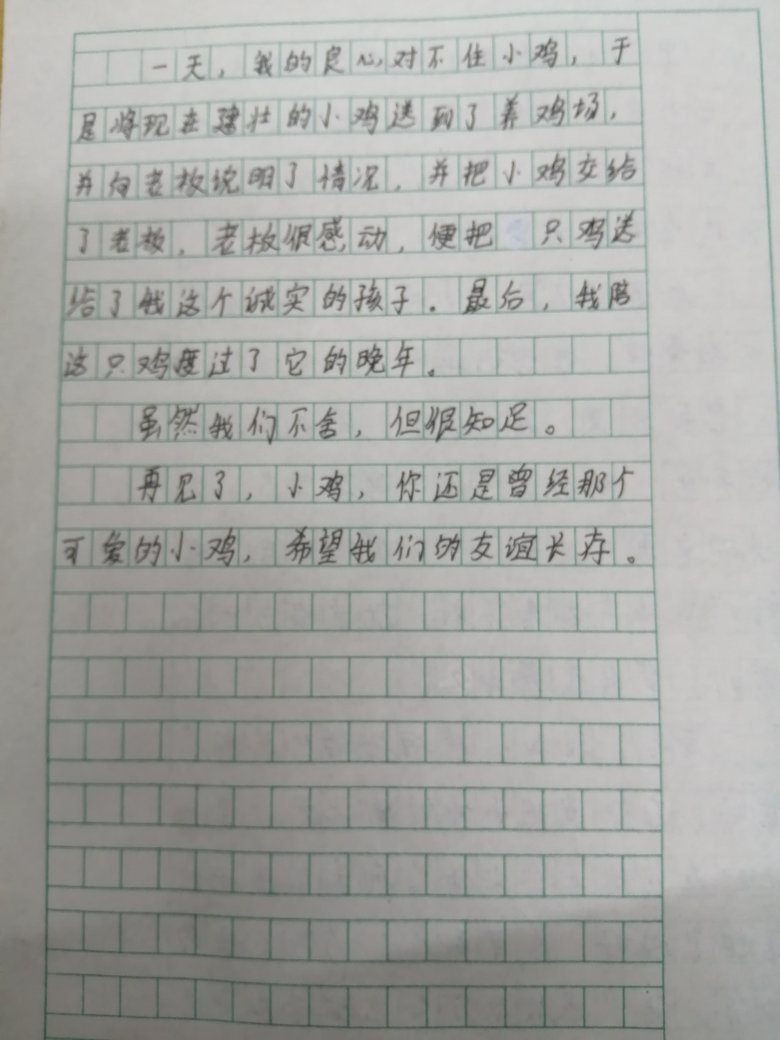 一天，我的良心对不住小鸡，于
是将现在建壮的小鸡送到了养鸡场，
并向老板说明了情况，并把小鸡交给
了老板，老板很感动，便把只鸡送
给了我这个诚实的孩子。最后，我陪
这只鸡度过了它的晚年。
虽然我们不舍，但很知足。
再见了，小鸡，你还是曾经那个
可爱的小鸡，希望我们的友谊长存。